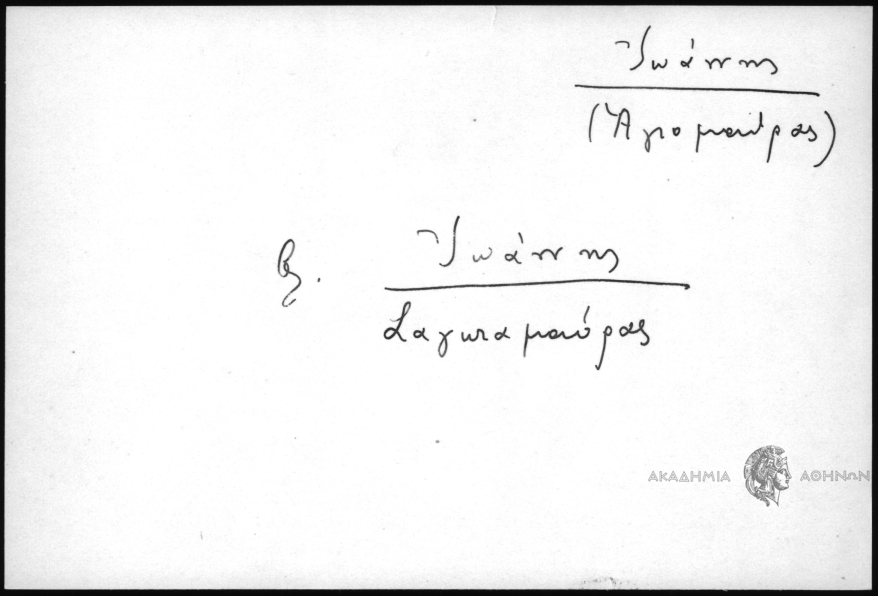 Ἰωάννης
(Ἁγιομαύρας)
βλ. Ἰωάννης
Σαγκταμαύρας
ΑΚΑΔΗΜΙΑ ΑΘΗΝΩΝ